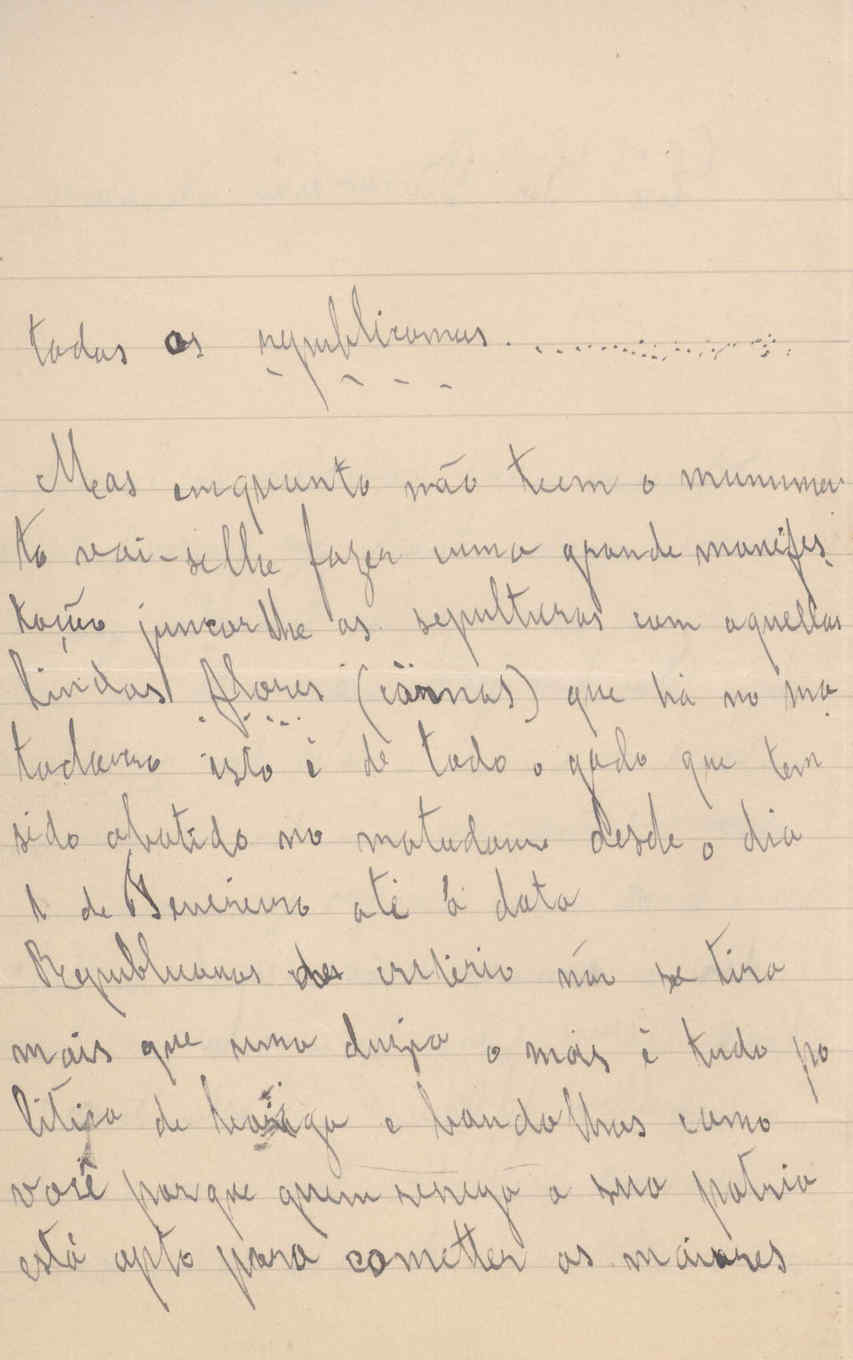 todos os republicanos ..................
Mas emquanto não teem o munumen
to vai-selhe fazer uma grande manifes
tação juncarlhe as sepulturas com aquellas
lindas flores (cärnas) que há no ma
tadouro isto é de todo o gado que tem
sido abatido no matadouro desde o dia
1 de Fevereiro até á data
Republicanos de critério não se tira
mais que uma duzia o mais é tudo po
litica de e bandalhos como
você porque quem renega a sua patria
está apto para cometter os maiores